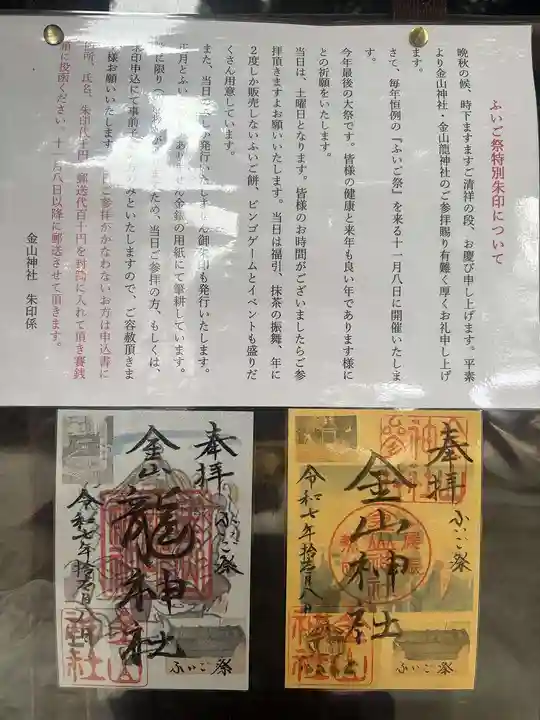 ふいご祭特別朱印について
晩秋の候、時下ますますご清祥の段、お慶び申し上げます。平素
より金山神社・金山龍神社のご参拝賜り有難く厚くお礼申し上げ
ます。
さて、毎年恒例の『ふいご祭』を来る十一月八日に開催いたしま
す。
今年最後の大祭です。皆様の健康と来年も良い年であります様に
との祈願をいたします。
当日は、土曜日となります。皆様のお時間がございましたらご参
拝頂きますよお願いいたします。当日は福引、抹茶の振舞、年に
２度しか販売しないふいご餅、ビンゴゲームとイベントも盛りだ
くさん用意しています。
また、当日
しか発行いたしません御朱印も発行いたします。
正月と
ありません金銀の用紙にて筆耕しています。
に限り
ため、当日ご参拝の方、もしくは、
朱印申込にて事前予
のみといたしますので、ご容赦頂きま
様お願いいたします。
ご参拝がかなわないお方は申込書に
住所、氏名、朱印代千円、郵送代百十円を封筒に入れて頂き賽銭
箱に投函ください。十一月八日以降に郵送させて頂きます。
金山神社　朱印係
奉拝
ふいご祭
金山神社
令和七年拾壱月八日
ふいご祭
奉拝
ふいご祭
金山龍神社
令和七年拾壱月八日
ふいご祭